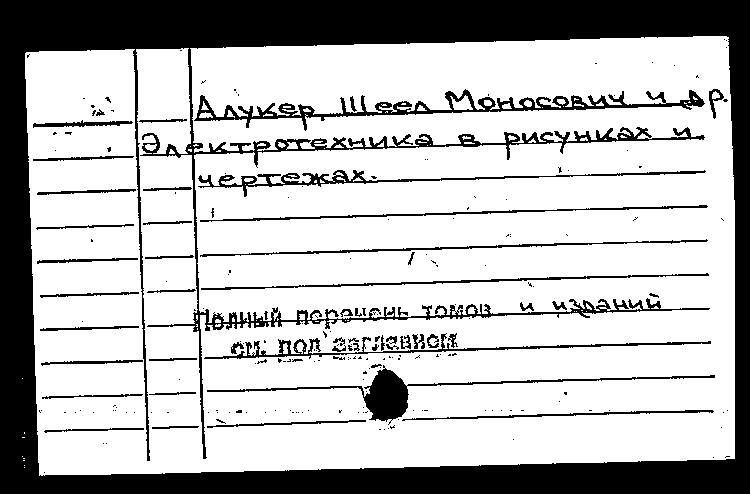 Алукер, Шеел Моносович и др.
Электротехника в рисунках и
чертежах.
Полный перечень томов и изданий
см. под заглавием